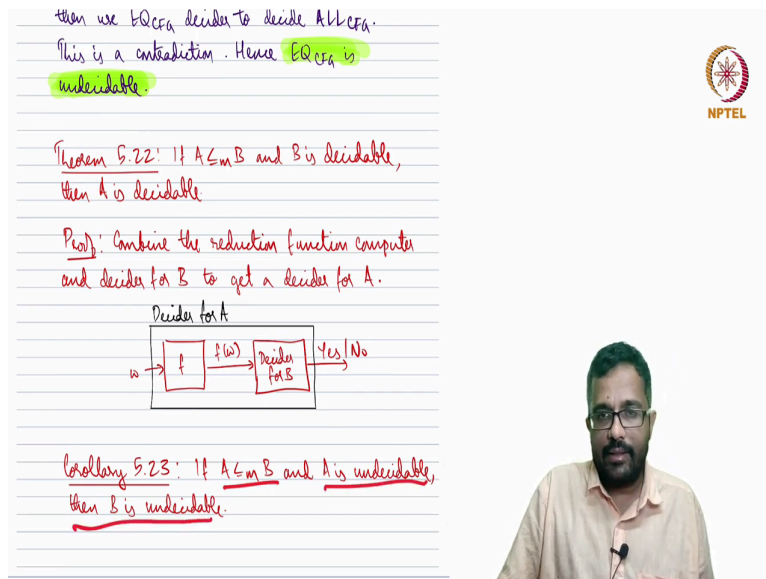 then use EQ_CFG decider to decide ALL_CFG.
This is a contradiction. Hence EQ_CFG is
undecidable.
NPTEL
Theorem 5.22: If A ≤m B and B is decidable,
then A is decidable
Proof: Combine the reduction function computer
and decider for B to get a decider for A.
Decider for A
w f f(w) Decider for B Yes/No
Corollary 5.23: If A ≤m B and A is undecidable,
then B is undecidable.